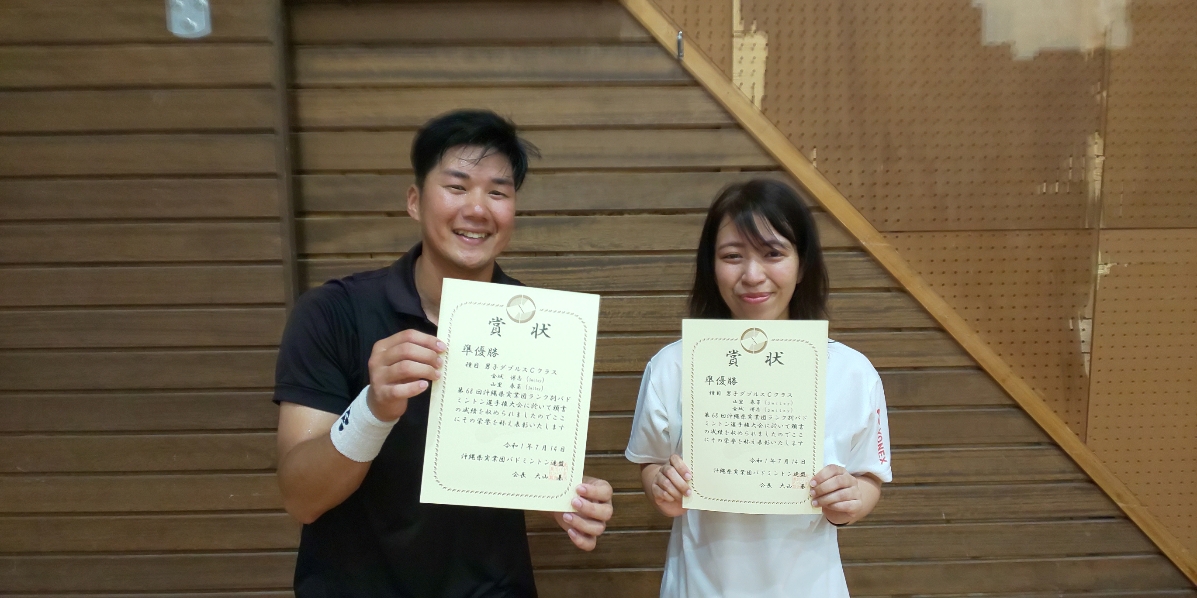 賞状
準優勝
種目 男子ダブルスCクラス
金城
山里
第68回沖縄県実業団ランク別バド
ミントン選手権大会に於いて頭書
の成績を収められましたのでここ
にその栄誉を称え表彰いたします
令和1年7月14日
沖縄県実業団バドミントン連盟
会長 大山
賞状
準優勝
種目 男子ダブルスCクラス
山里
金城
第68回沖縄県実業団ランク別バド
ミントン選手権大会に於いて頭書
の成績を収められましたのでここ
にその栄誉を称え表彰いたします
令和1年7月14日
沖縄県実業団バドミントン連盟
会長 大山
YONEX